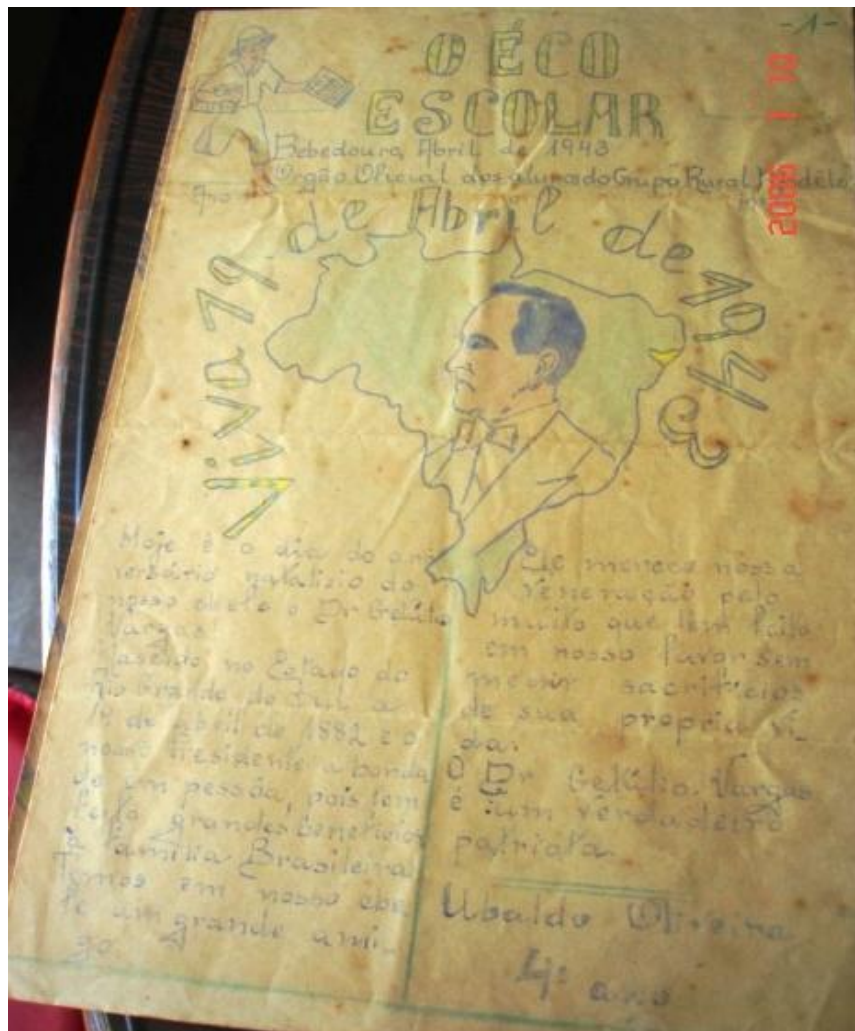 -1-
O ÉCO
ESCOLAR
Bebedouro, Abril de 1943
Orgão Oficial dos alunos do Grupo Rural Modêlo
Ano
Viva 19 de Abril de 194
Hoje é o dia do ani
versário natalicio do
nosso chefe o Dr Getúlio
Vargas
Nascido no Estado do
Rio Grande do Sul a
19 de Abril de 1882 e o
nosso Presidente a bonda
de em pessôa, pois tem
feito grandes beneficios
Família Brasileira
Temos em nosso che
fe um grande ami-
go.
Ele merece nossa
veneração pelo
muito que tem feito
em nosso favor sem
medir sacrificios
de sua propria vi-
da.
O Dr Getúlio Vargas
é um verdadeiro
patriota
Ubaldo Oliveira
4º ano
10 1 2006